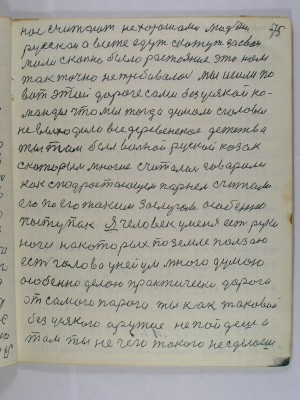 ное считают нехорошами людьми,
русском а вы те едут скажут
мали сколко было растояние это нам
так точно не требавалос мы шли по
вот этай дароге сами без всякой ко-
манды что мы тогда думали с головы
не выходило все деревенское детства
ты там был волной руской козак
с каторым многие считалис гаварили
как с подростающим парнем считали
его по его таким заслугам особенно
поступак Я человек у меня ест руки
ноги на каторых по земле ползаю
ест голова у ней ум много думаю
особенно делаю практически дорога
от самого парога ты как таковой
без всякого оружие не пойдеш а
там ты не чего такого не сделаеш